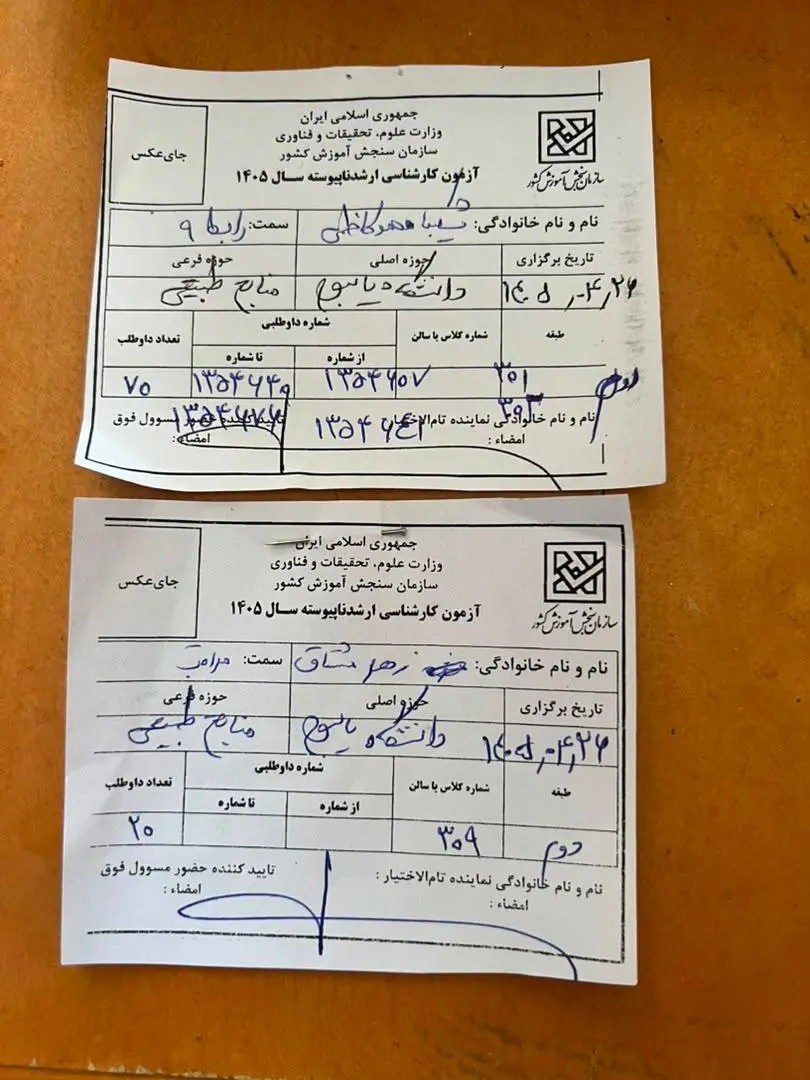 جمهوری اسلامی ایران
وزارت علوم، تحقیقات و فناوری
سازمان سنجش آموزش کشور
آزمون کارشناسی ارشدناپیوسته سـال ۱۴۰۵
جای‌عکس
سازمان سنجش آموزش کشور
نام و نام خانوادگی: شیبا محمدکاظمی سمت: رابط ۹
تاریخ برگزاری حوزه اصلی حوزه فرعی
۱۴۰۵,۰۴,۲۶ دانشگاه یاسوج منابع طبیعی
طبقه شماره کلاس یا سالن شماره داوطلبی تعداد داوطلب
از شماره تا شماره
دوم ۳۰۱ ۱۳۵۴۶۵۷ ۷۵
۳۰۳
نام و نام خانوادگی نماینده تام‌الاختیار: تایید کننده حضور مسوول فوق
امضاء : امضاء :
جمهوری اسلامی ایران
وزارت علوم، تحقیقات و فناوری
سازمان سنجش آموزش کشور
آزمون کارشناسی ارشدناپیوسته سـال ۱۴۰۵
جای‌عکس
سازمان سنجش آموزش کشور
نام و نام خانوادگی: زهرا مشتاق سمت: مراقب
تاریخ برگزاری حوزه اصلی حوزه فرعی
۱۴۰۵,۰۴,۲۶ دانشگاه یاسوج منابع طبیعی
طبقه شماره کلاس یا سالن شماره داوطلبی تعداد داوطلب
از شماره تا شماره
دوم ۳۰۹ ۲۵
نام و نام خانوادگی نماینده تام‌الاختیار : تایید کننده حضور مسوول فوق
امضاء : امضاء :